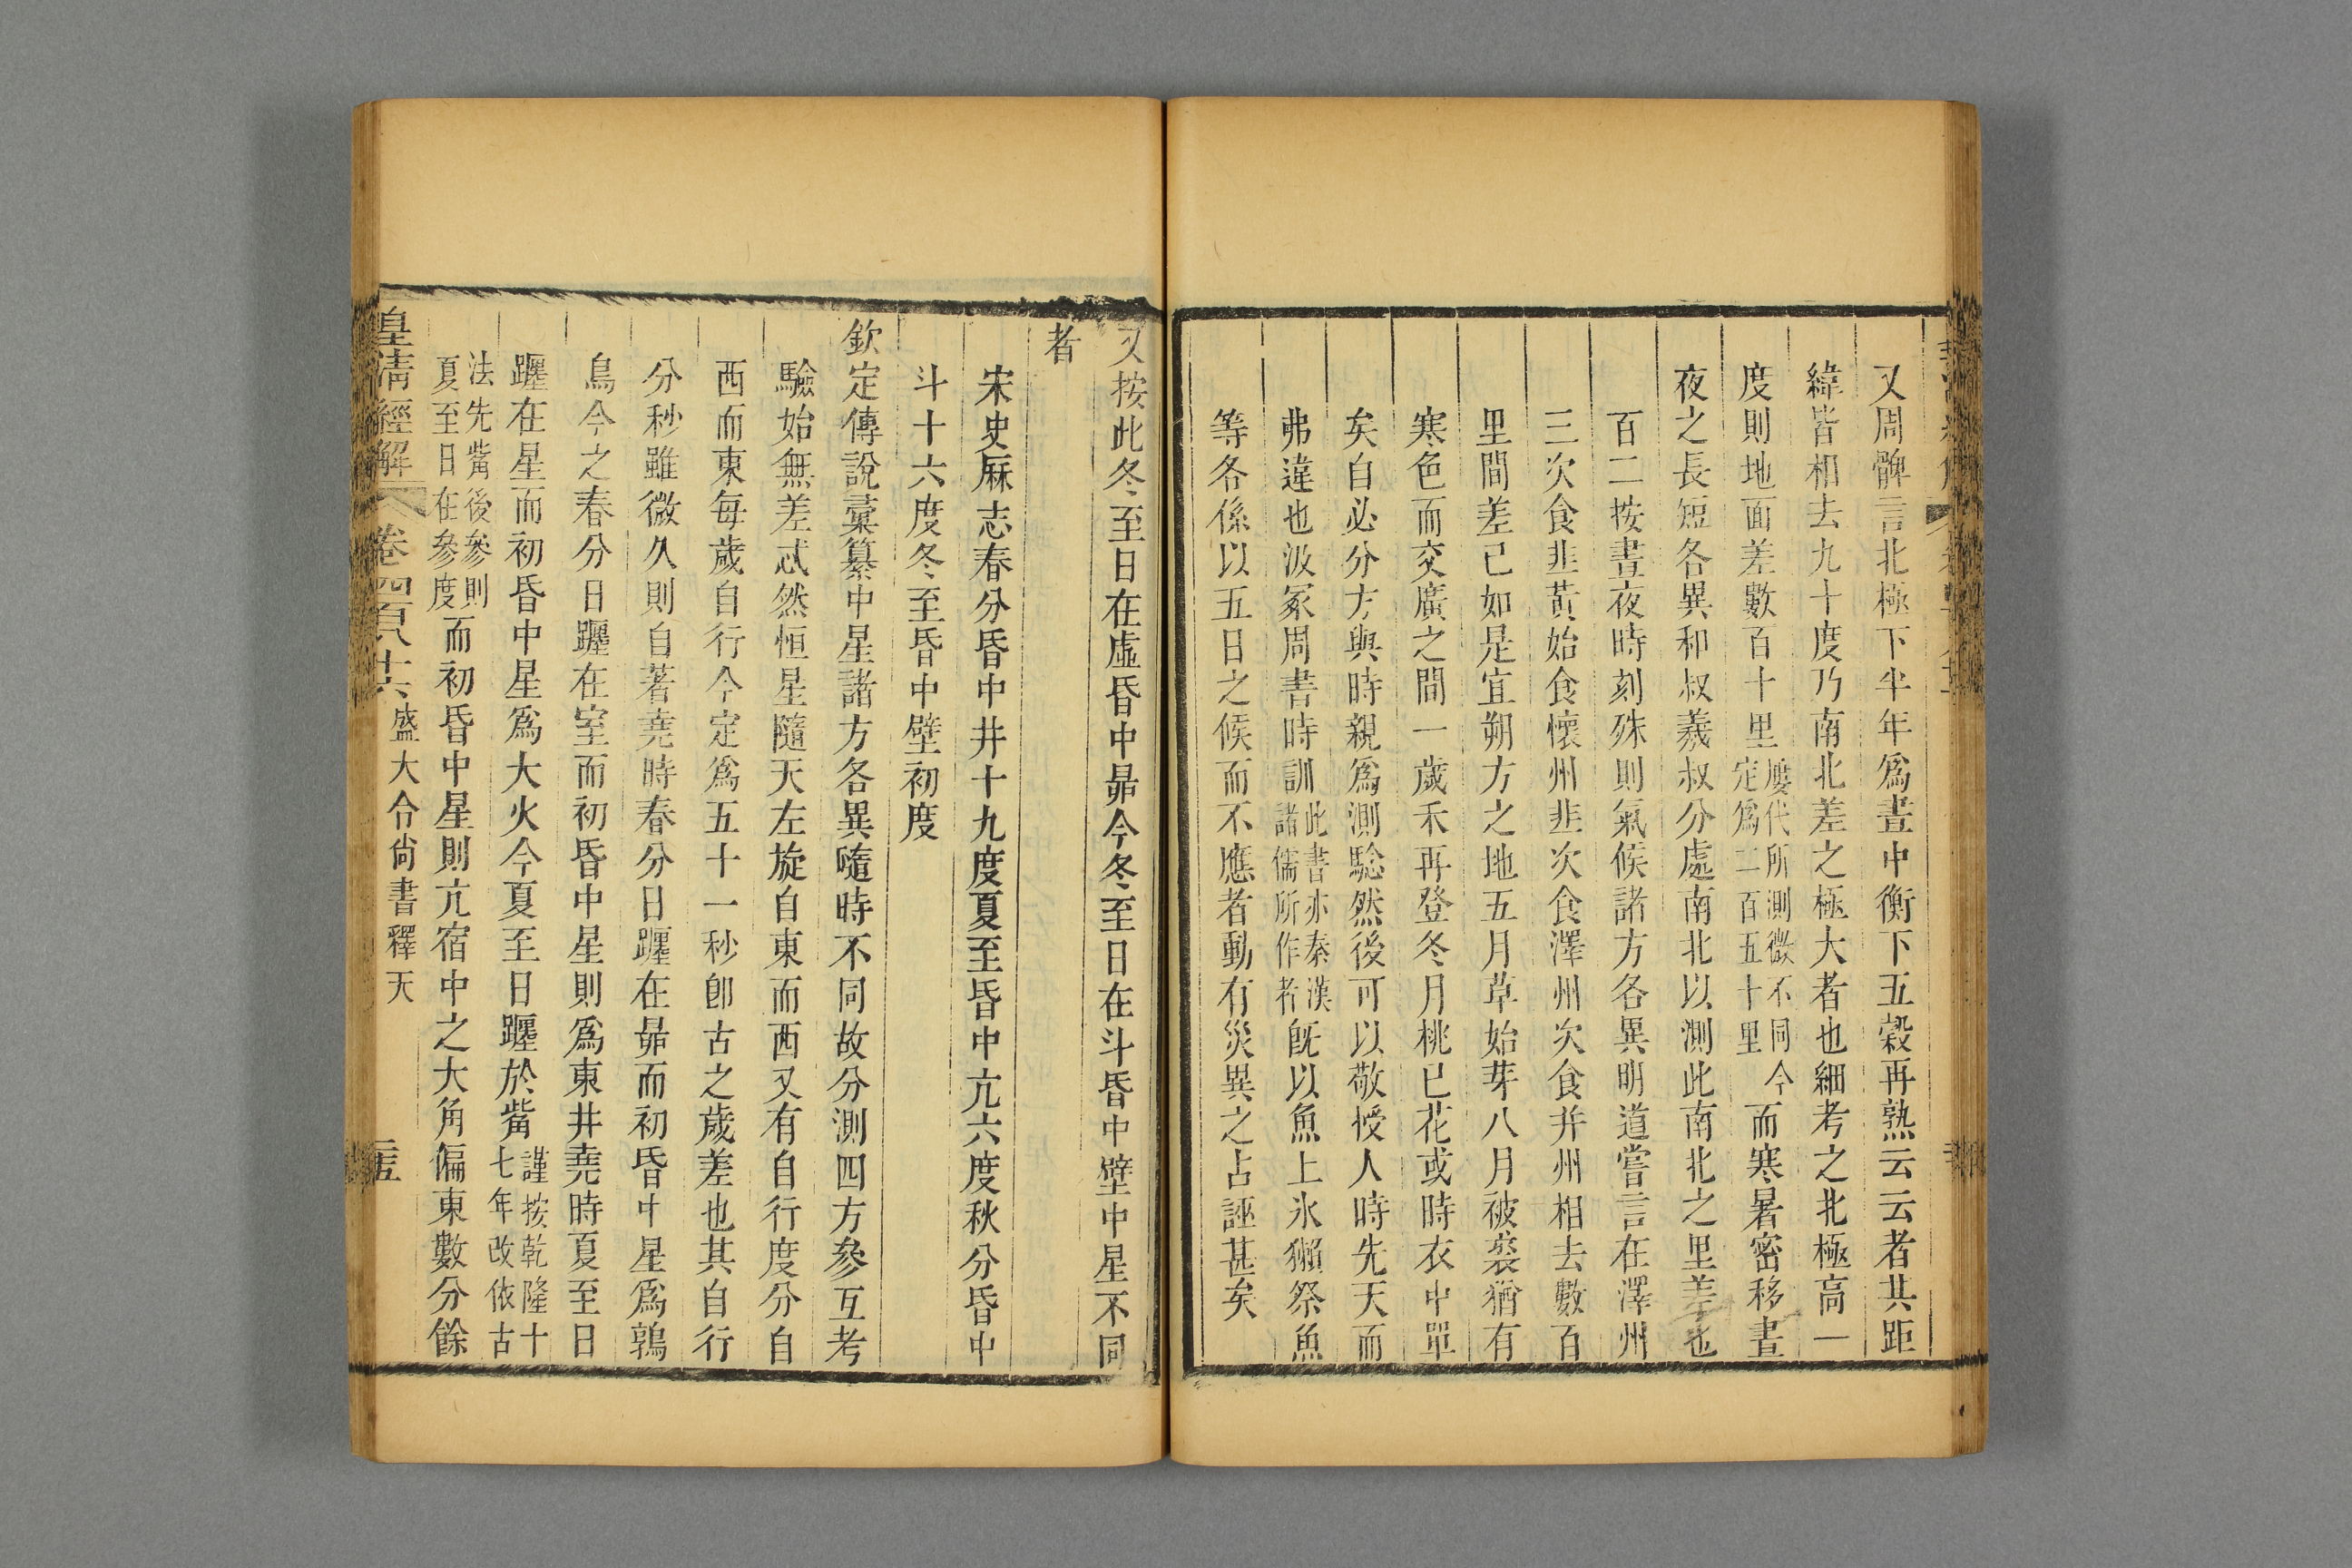 又周髀言北極下半年爲晝中衡下五穀再熟云云者其距
緯皆相去九十度乃南北差之極大者也細考之北極高一
度則地面差數百十里屢代所測微不同今定爲二百五十里而寒暑密移晝
夜之長短各異和叔羲叔分處南北以測此南北之里差也
百二按晝夜時刻殊則氣候諸方各異明道嘗言在澤州
三次食韭黃始食懷州韭次食澤州次食并州相去數百
里間差已如是宜朔方之地五月草始芽八月被裘猶有
寒色而交廣之間一歲禾再登冬月桃已花或時衣中單
矣自必分方與時親爲測騐然後可以敬授人時先天而
弗違也汲冢周書時訓此書亦秦漢諸儒所作者旣以魚上氷獺祭魚
等各係以五日之候而不應者動有災異之占誣甚矣
又按此冬至日在虛昏中昴今冬至日在斗昏中壁中星不同
者
宋史厤志春分昏中井十九度夏至昏中亢六度秋分昏中
斗十六度冬至昏中壁初度
欽定傳說彙纂中星諸方各異隨時不同故分測四方參互考
驗始無差忒然恒星隨天左旋自東而西又有自行度分自
西而東每歲自行今定爲五十一秒卽古之歲差也其自行
分秒雖微久則自著堯時春分日躔在昴而初昏中星爲鶉
鳥今之春分日躔在室而初昏中星則爲東井堯時夏至日
躔在星而初昏中星爲大火今夏至日躔於觜謹按乾隆十七年改依古
法先觜後參則夏至日在參度而初昏中星則亢宿中之大角偏東數分餘
皇清經解 卷四百八十六 盛大令尙書釋天 二五